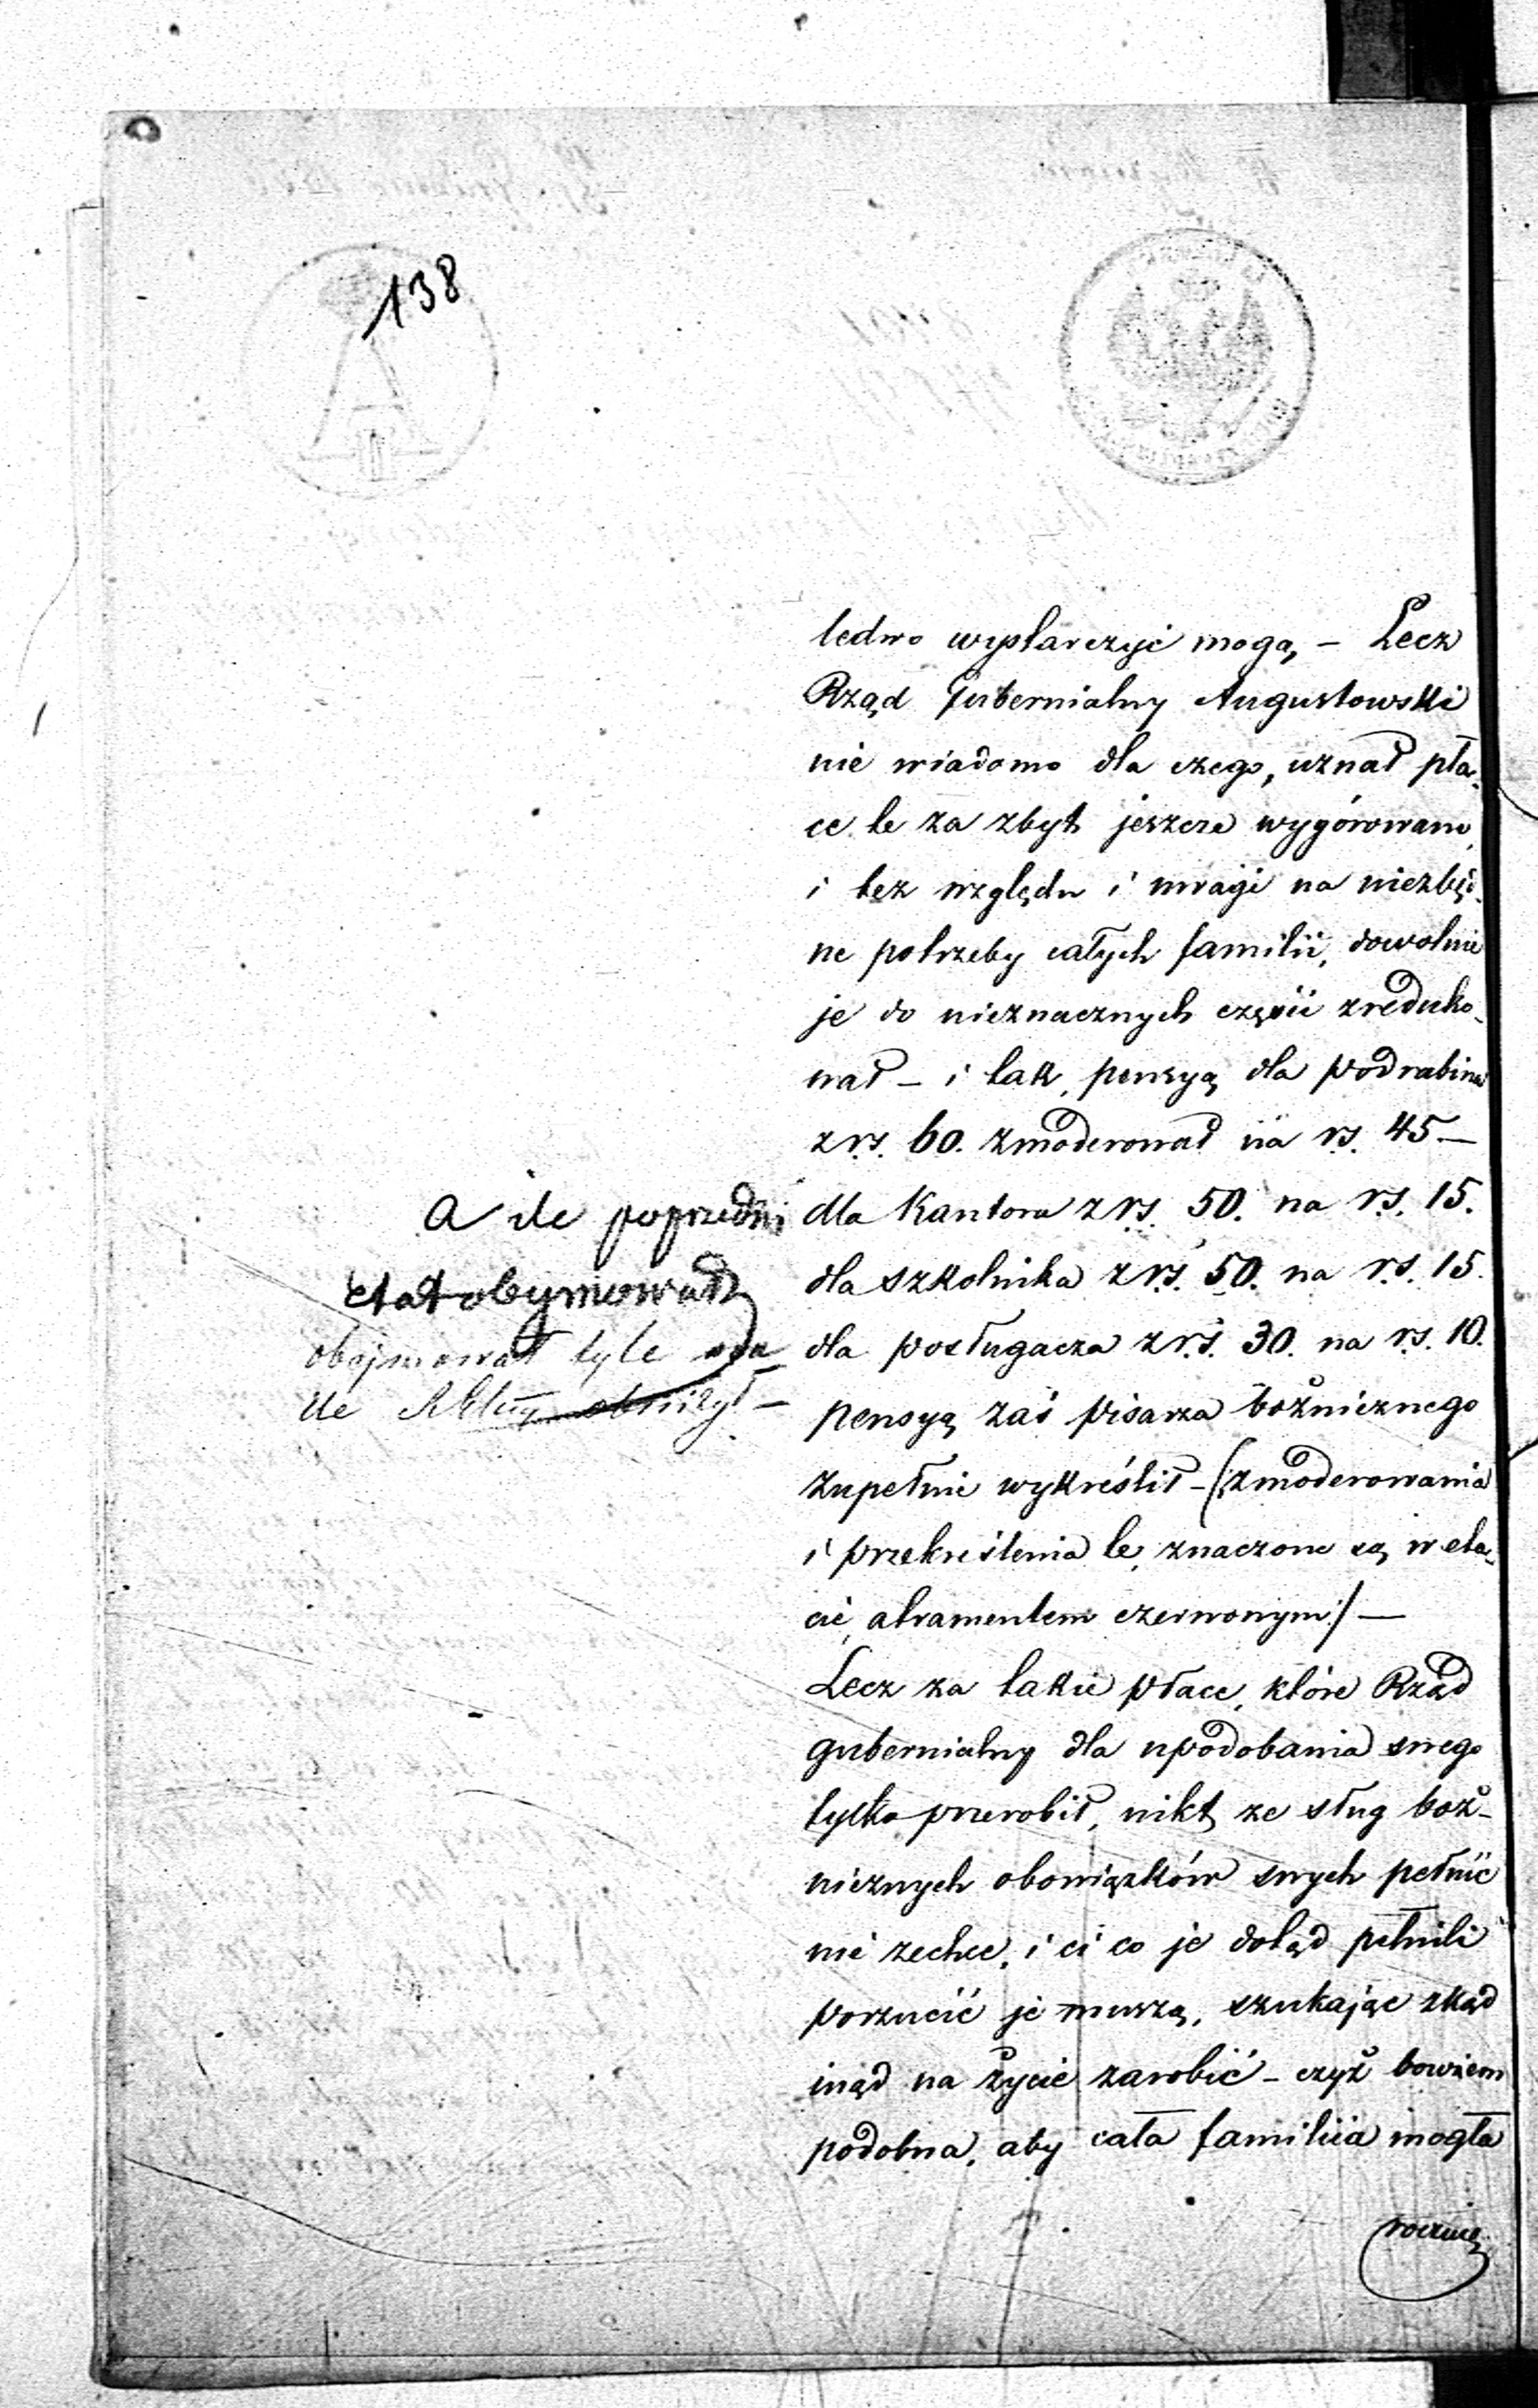 138
ledwo wystarczyć mogą, – Lecz
Rząd Gubernialny Augustowski
nie wiadomo dla czego, uznał pła-
ce te za zbyt jeszcze wygórowane,
i bez względu i uwagi na niezbęd-
ne potrzeby całych familii, dowolnie
je do nieznacznych części zreduko-
wał – i tak, pensyą dla podrabina
z rs. 60. zmoderował na rs. 45 –
dla Kantora z rs. 50. na rs. 15.
dla szkolnika z rs. 50. na rs. 15.
dla posługacza z rs. 30. na rs. 10.
pensyą zaś pisarza bóżnicznego
zupełnie wykreślił – (: zmoderowania
i przekreślenia te, znaczone są w eta-
cie, atramentem czerwonym :/ –
Lecz za takie płace, które Rząd
gubernialny dla upodobania swego
tylko przerobił, nikt ze sług boż-
nicznych obowiązków swych pełnić
nie zechce, i ci co je dotąd pełnili
porzucić je muszą, szukając zkąd
inąd na życie zarobić – czyż bowiem
podobna, aby cała familiia mogła
rocznie
A ile poprzedni
etat obymował
obejmował tyle
ile obniżył –